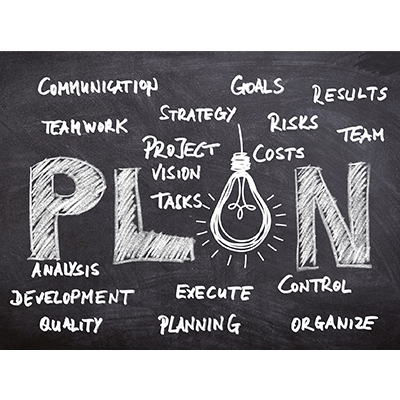 COMMUNICATION
GOALS
RESULTS
STRATEGY
TEAMWORK
RISKS
TEAM
PROJECT
VISION
COSTS
TASKS
PL N
ANALYSIS
CONTROL
DEVELOPMENT
EXECUTE
QUALITY
PLANNING
ORGANIZE